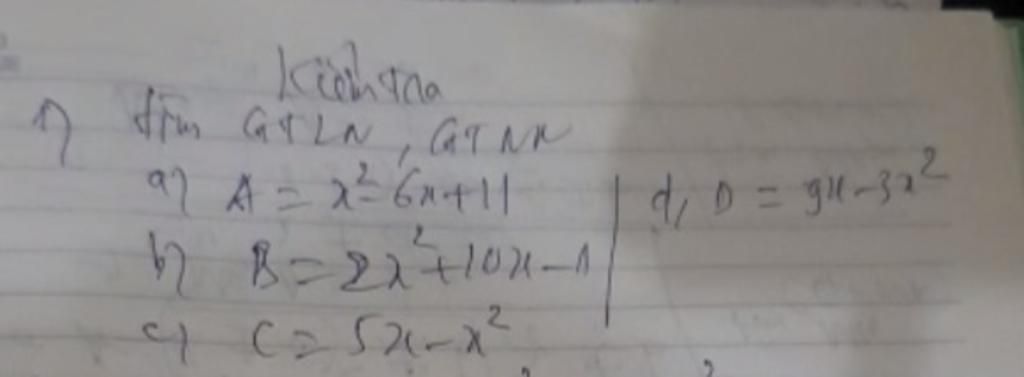 Kiểm tra
1) Tìm GTLN, GTNN
a) A = x² - 6x + 11
b) B = 2x² + 10x - 1
c) C = 5x - x²
d, D = 9x - 3x²